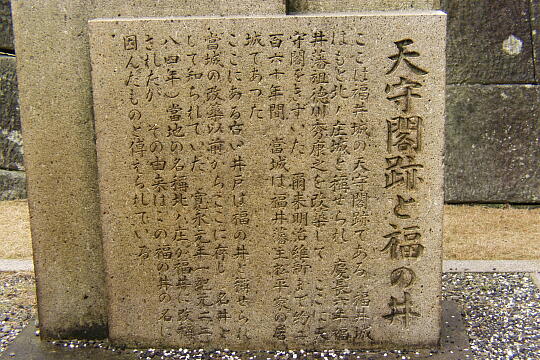 天守閣跡と福の井
ここは福井城の天守閣跡である 福井城
はもと北ノ庄城と稱せられ 慶長六年福
井藩祖徳川家康之を改築して ここに天
守閣をきずいた 爾来明治維新まで約二
百六十年間 當城は福井藩主松平家の居
城であつた
ここにある古い井戸は福の井と稱せられ
當城の改築以前からここに存し 名井と
して知られていた 寛永元年(紀元二二
八四年)當地の名稱北ノ庄が福井に改稱
されたが その由来はこの福の井の名に
因んだものと傳えられている